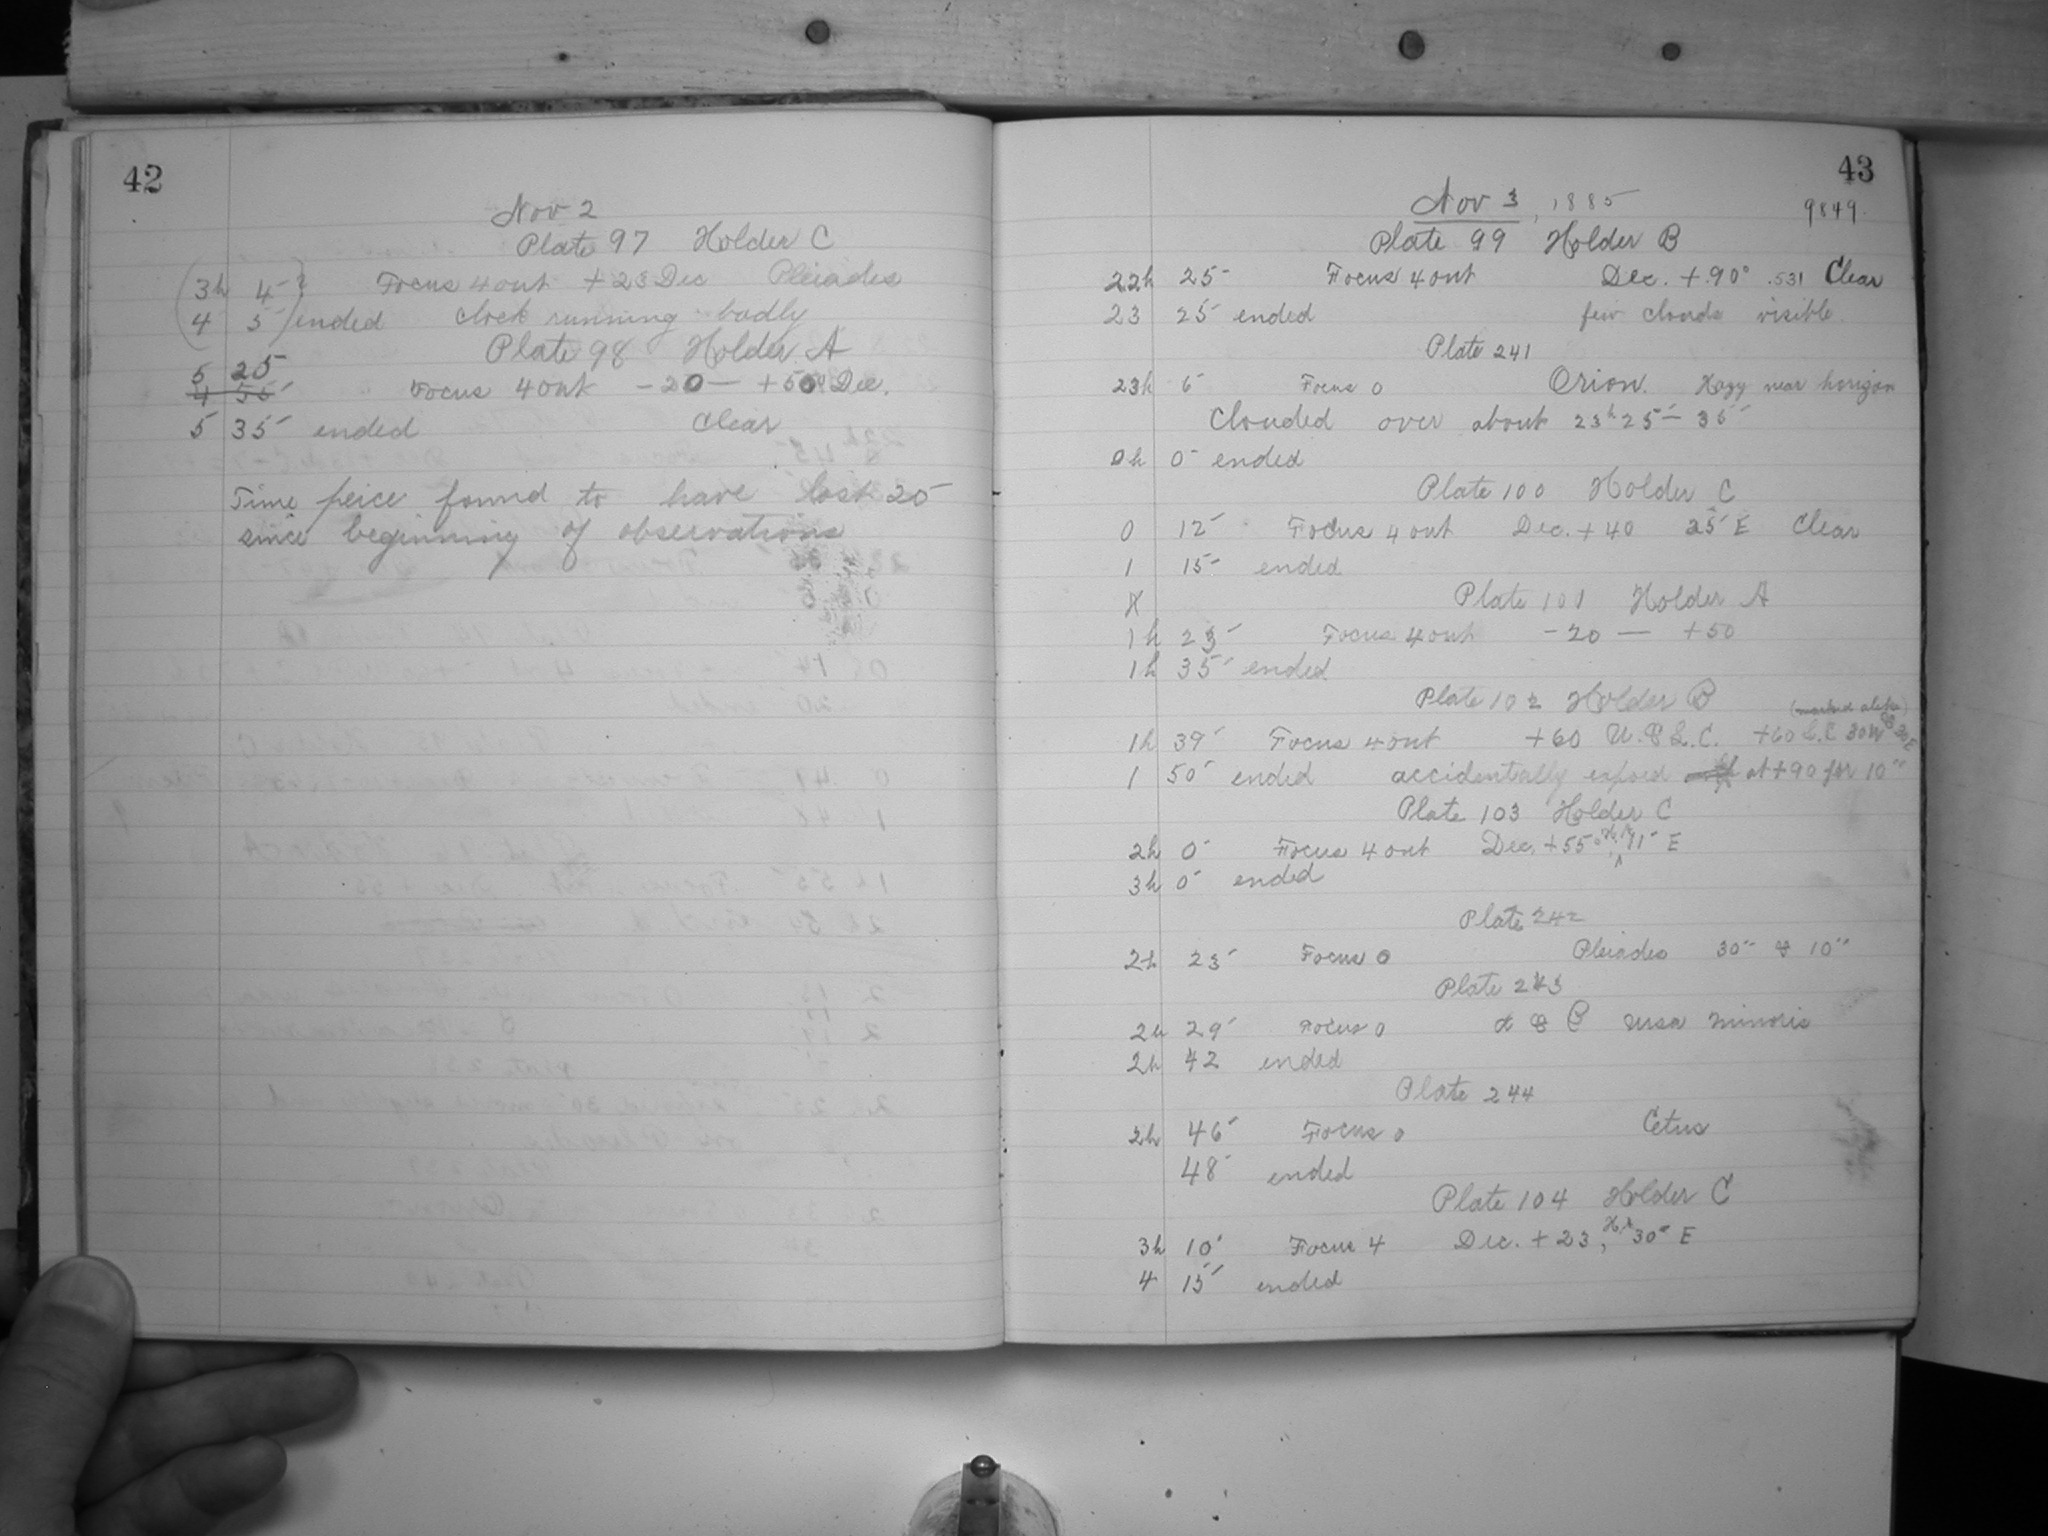 42
Nov 2
Plate 97 Holder C
3h 45 Focus 4 out +23 Dec Pleiades
4 5 ended Clock running badly
Plate 98 Holder A
5 25
4 55 Focus 4 out -20 — +50 Dec.
5 35 ended Clear
Time peice found to have lost 20
since beginning of observations
43
Nov 3, 1885
9849
Plate 99 Holder B
22h 25 Focus 4 out Dec. +90° .531 Clear
23 25 ended few clouds visible
Plate 241
23h 6 Focus 0 Orion. Hazy near horizon
Clouded over about 23h 25 — 35
0h 0 ended
Plate 100 Holder C
0 12 Focus 4 out Dec. +40 25 E Clear
1 15 ended
Plate 101 Holder A
1h 23 Focus 4 out -20 — +50
1h 35 ended
Plate 102 Holder B
1h 39 Focus 4 out +60 U. & L.C. +60 L.C 30W & 30E
1 50 ended accidentally exposed at +90 for 10"
Plate 103 Holder C
2h 0 Focus 4 out Dec. +55° 11 E
3h 0 ended
Plate 242
2h 23 Focus 0 Pleiades 30" & 10"
Plate 243
2h 29 Focus 0 & Ursa Minoris
2h 42 ended
Plate 244
2h 46 Focus 0 Cetus
48 ended
Plate 104 Holder C
3h 10 Focus 4 Dec. +23, 30 E
4 15 ended